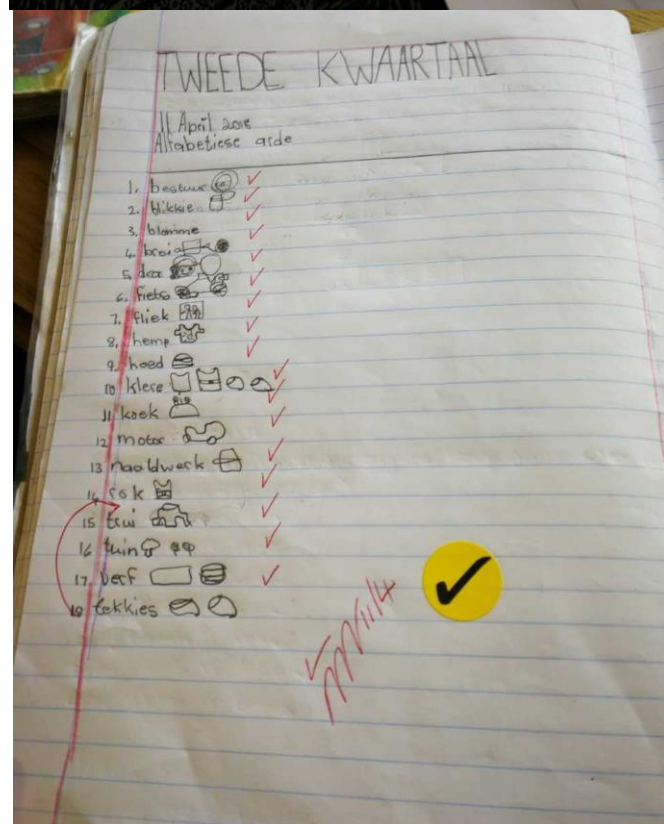 TWEEDE KWAARTAAL
11 April 2018
Alfabetiese orde
1. bestuur
2. blikkie
3. blomme
4. braai
5. deur
6. fiets
7. fliek
8. hemp
9. hoed
10 klere
11 koek
12 motor
13 naaldwerk
14 rok
15 trui
16 tuin
17. verf
18 tekkies
11/4